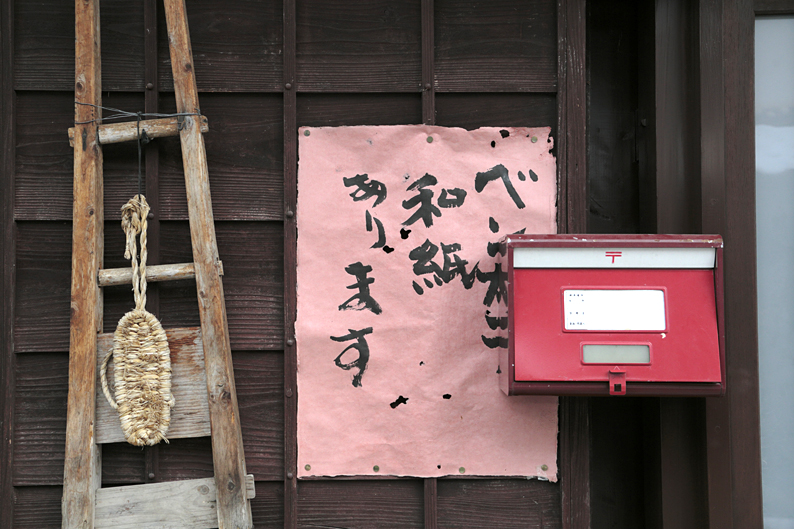 べ
和紙
あります
〒